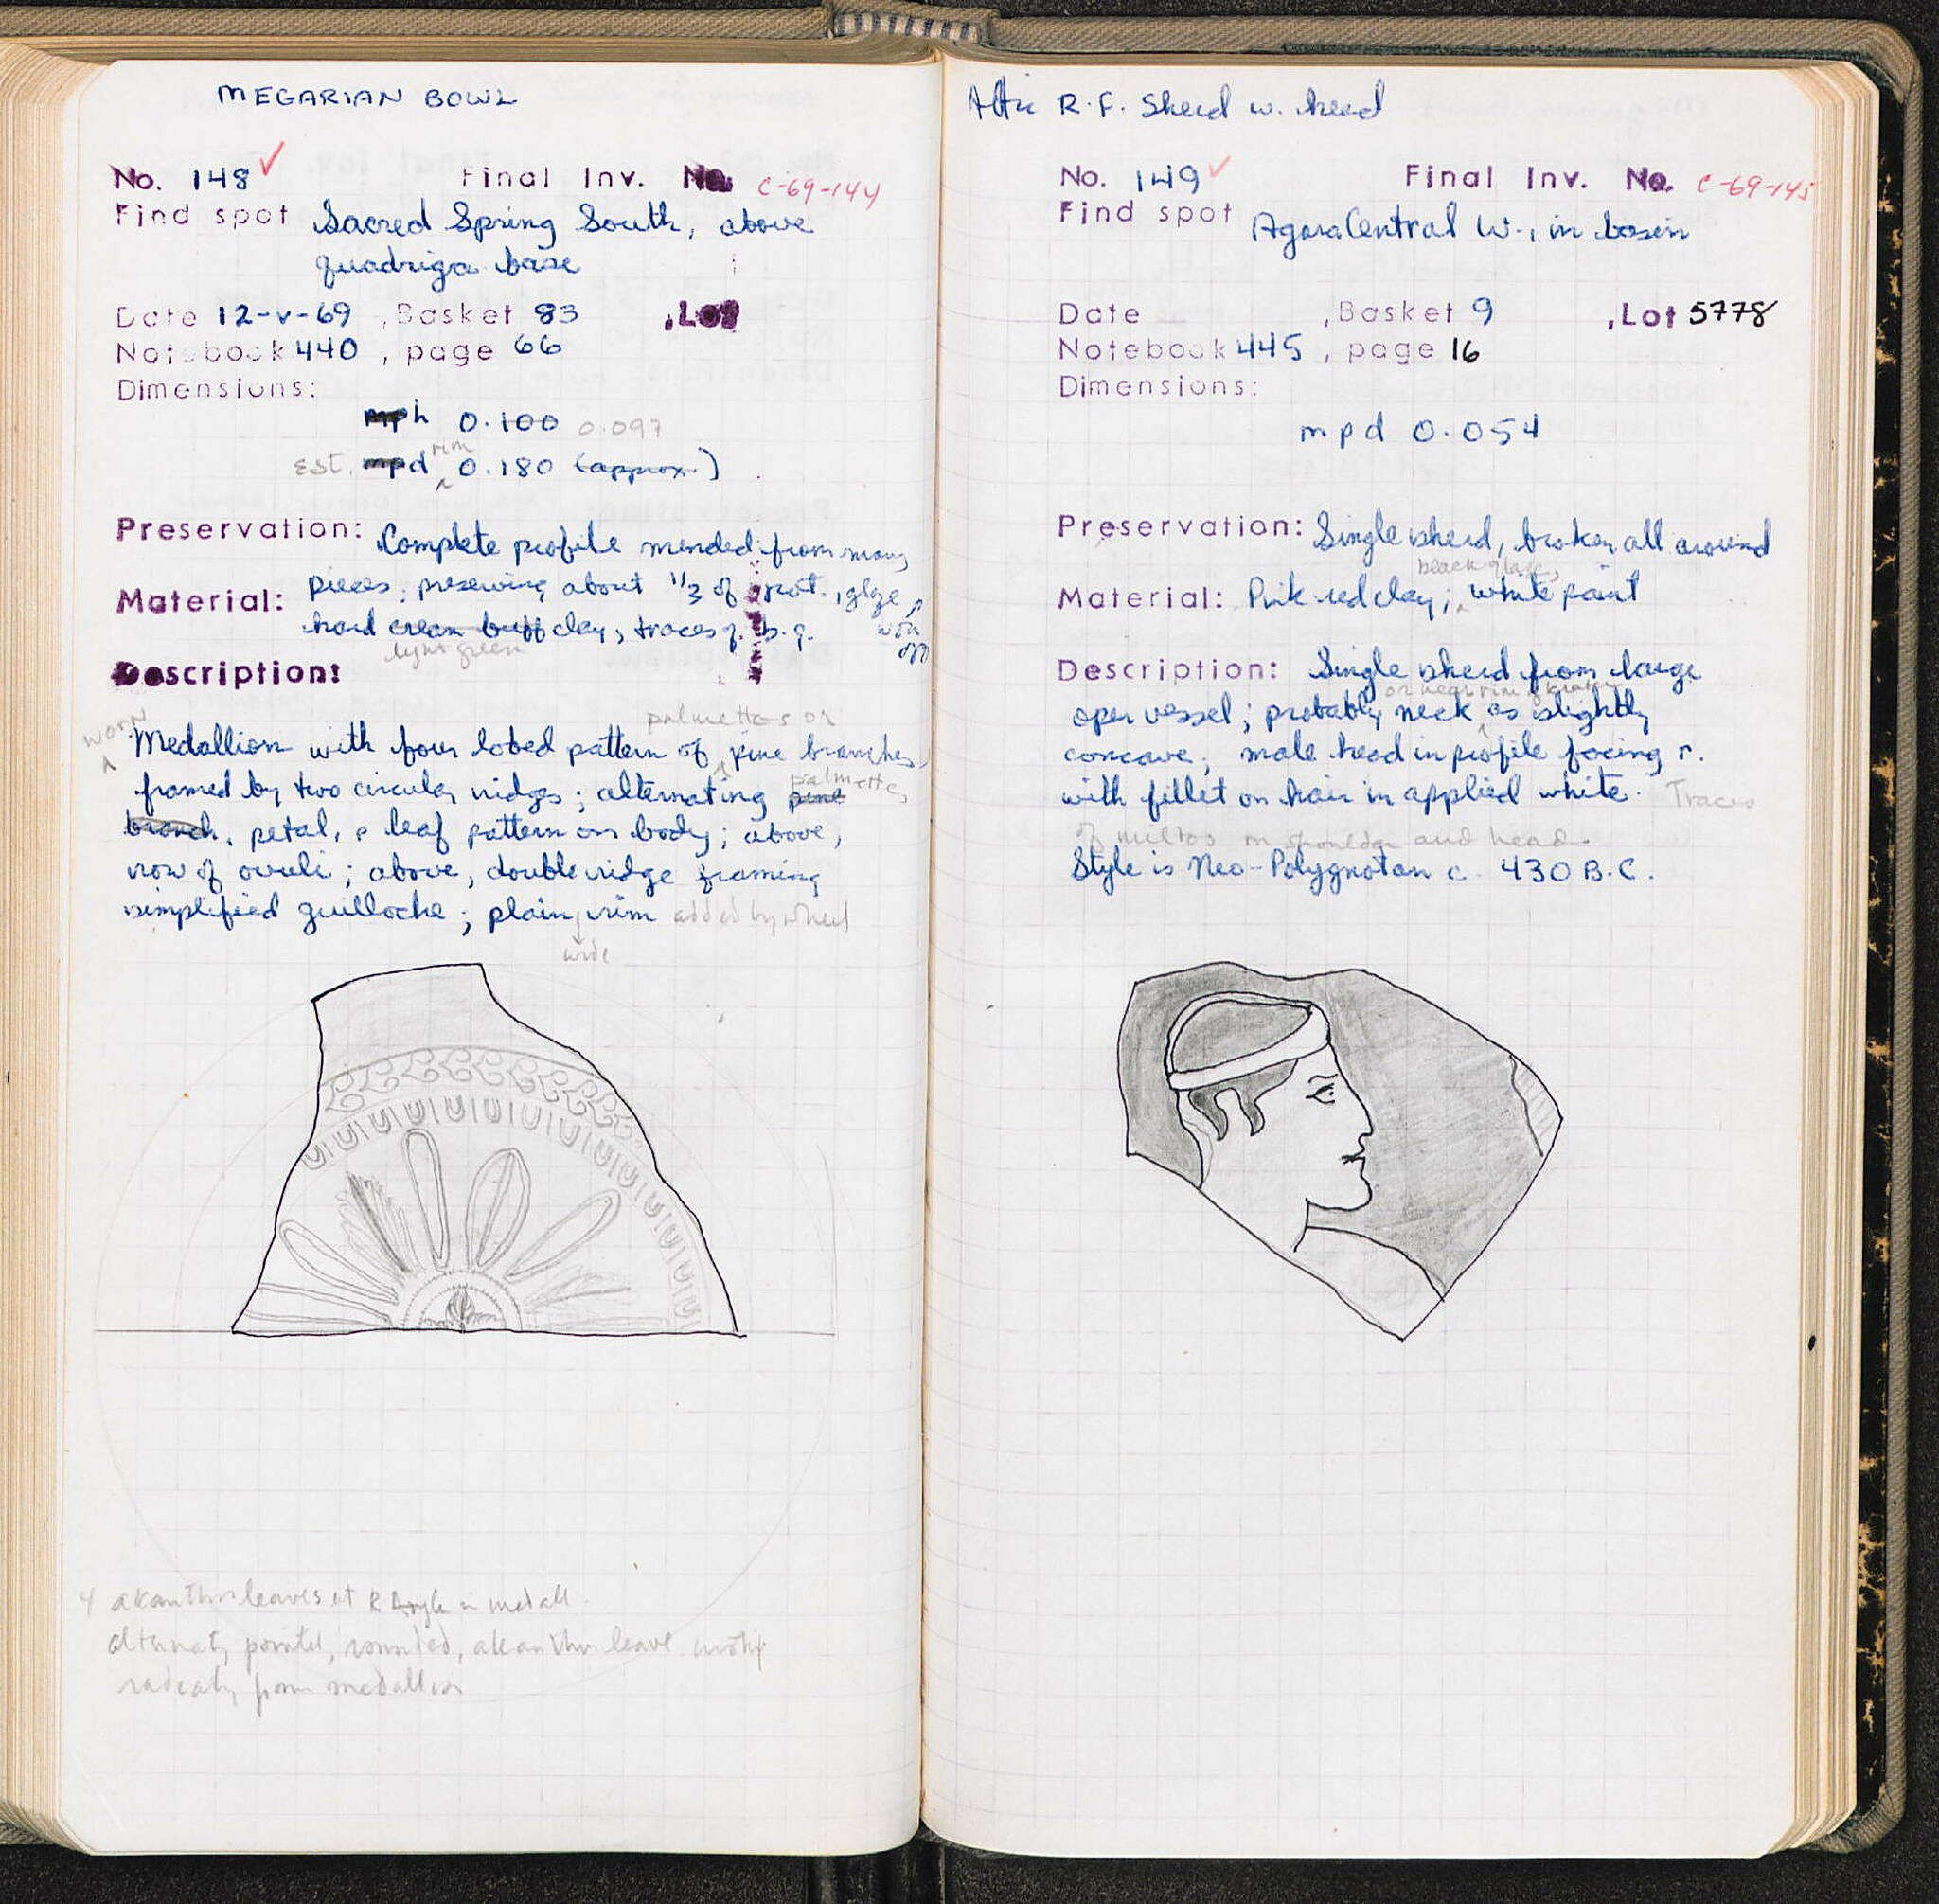 MEGARIAN BOWL
No. 148 ✓ Final Inv. No. C-69-144
Find spot Sacred Spring South, above
quadriga base
Date 12-V-69, Basket 83, Lot
Notebook 440, page 66
Dimensions:
mph 0.100 0.097
Est. mpd rim 0.180 (approx.)
Preservation: Complete profile mended from many
pieces; preserving about 1/3 of pot., glaze worn off
Material: hard cream buff clay, traces of b.g.
light green
Description:
palmettes or
worn Medallion with four lobed pattern of pine branches
framed by two circular ridges; alternating pine palmette,
branch, petal, & leaf pattern on body; above,
row of ovuli; above, double ridge framing
simplified guilloche; plain rim added by wheel
wide
4 akanthus leaves at R Angle in medall.
alternat. pointed, rounded, akanthus leave motif
radeat. from medallion
Attic R.F. Sherd w. head
No. 149 ✓ Final Inv. No. C-69-145
Find spot Agora Central W., in basin
Date , Basket 9, Lot 5778
Notebook 445, page 16
Dimensions:
mpd 0.054
Preservation: Single sherd, broken all around
black glaze,
Material: Pink red clay; white paint
Description: Single sherd from large
or near rim of krater
open vessel; probably neck as slightly
concave; male head in profile facing r.
with fillet on hair in applied white. Traces
of miltos on shoulder and head.
Style is Neo-Polygnotan c. 430 B.C.